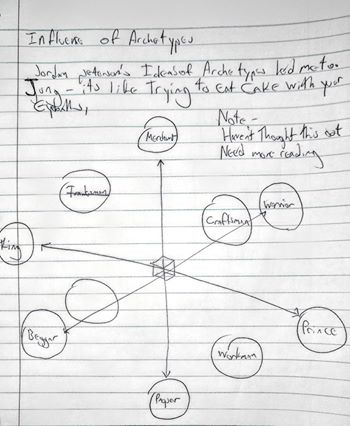 Influens of Archetypes
Jordan Peterson's Ideas of Archetypes led me to
Jung - its like Trying to Eat Cake with your
Note -
Havent Thought This out
Need more reading
Merchant
Warrior
Craftsman
King
Prince
Beggar
Workman